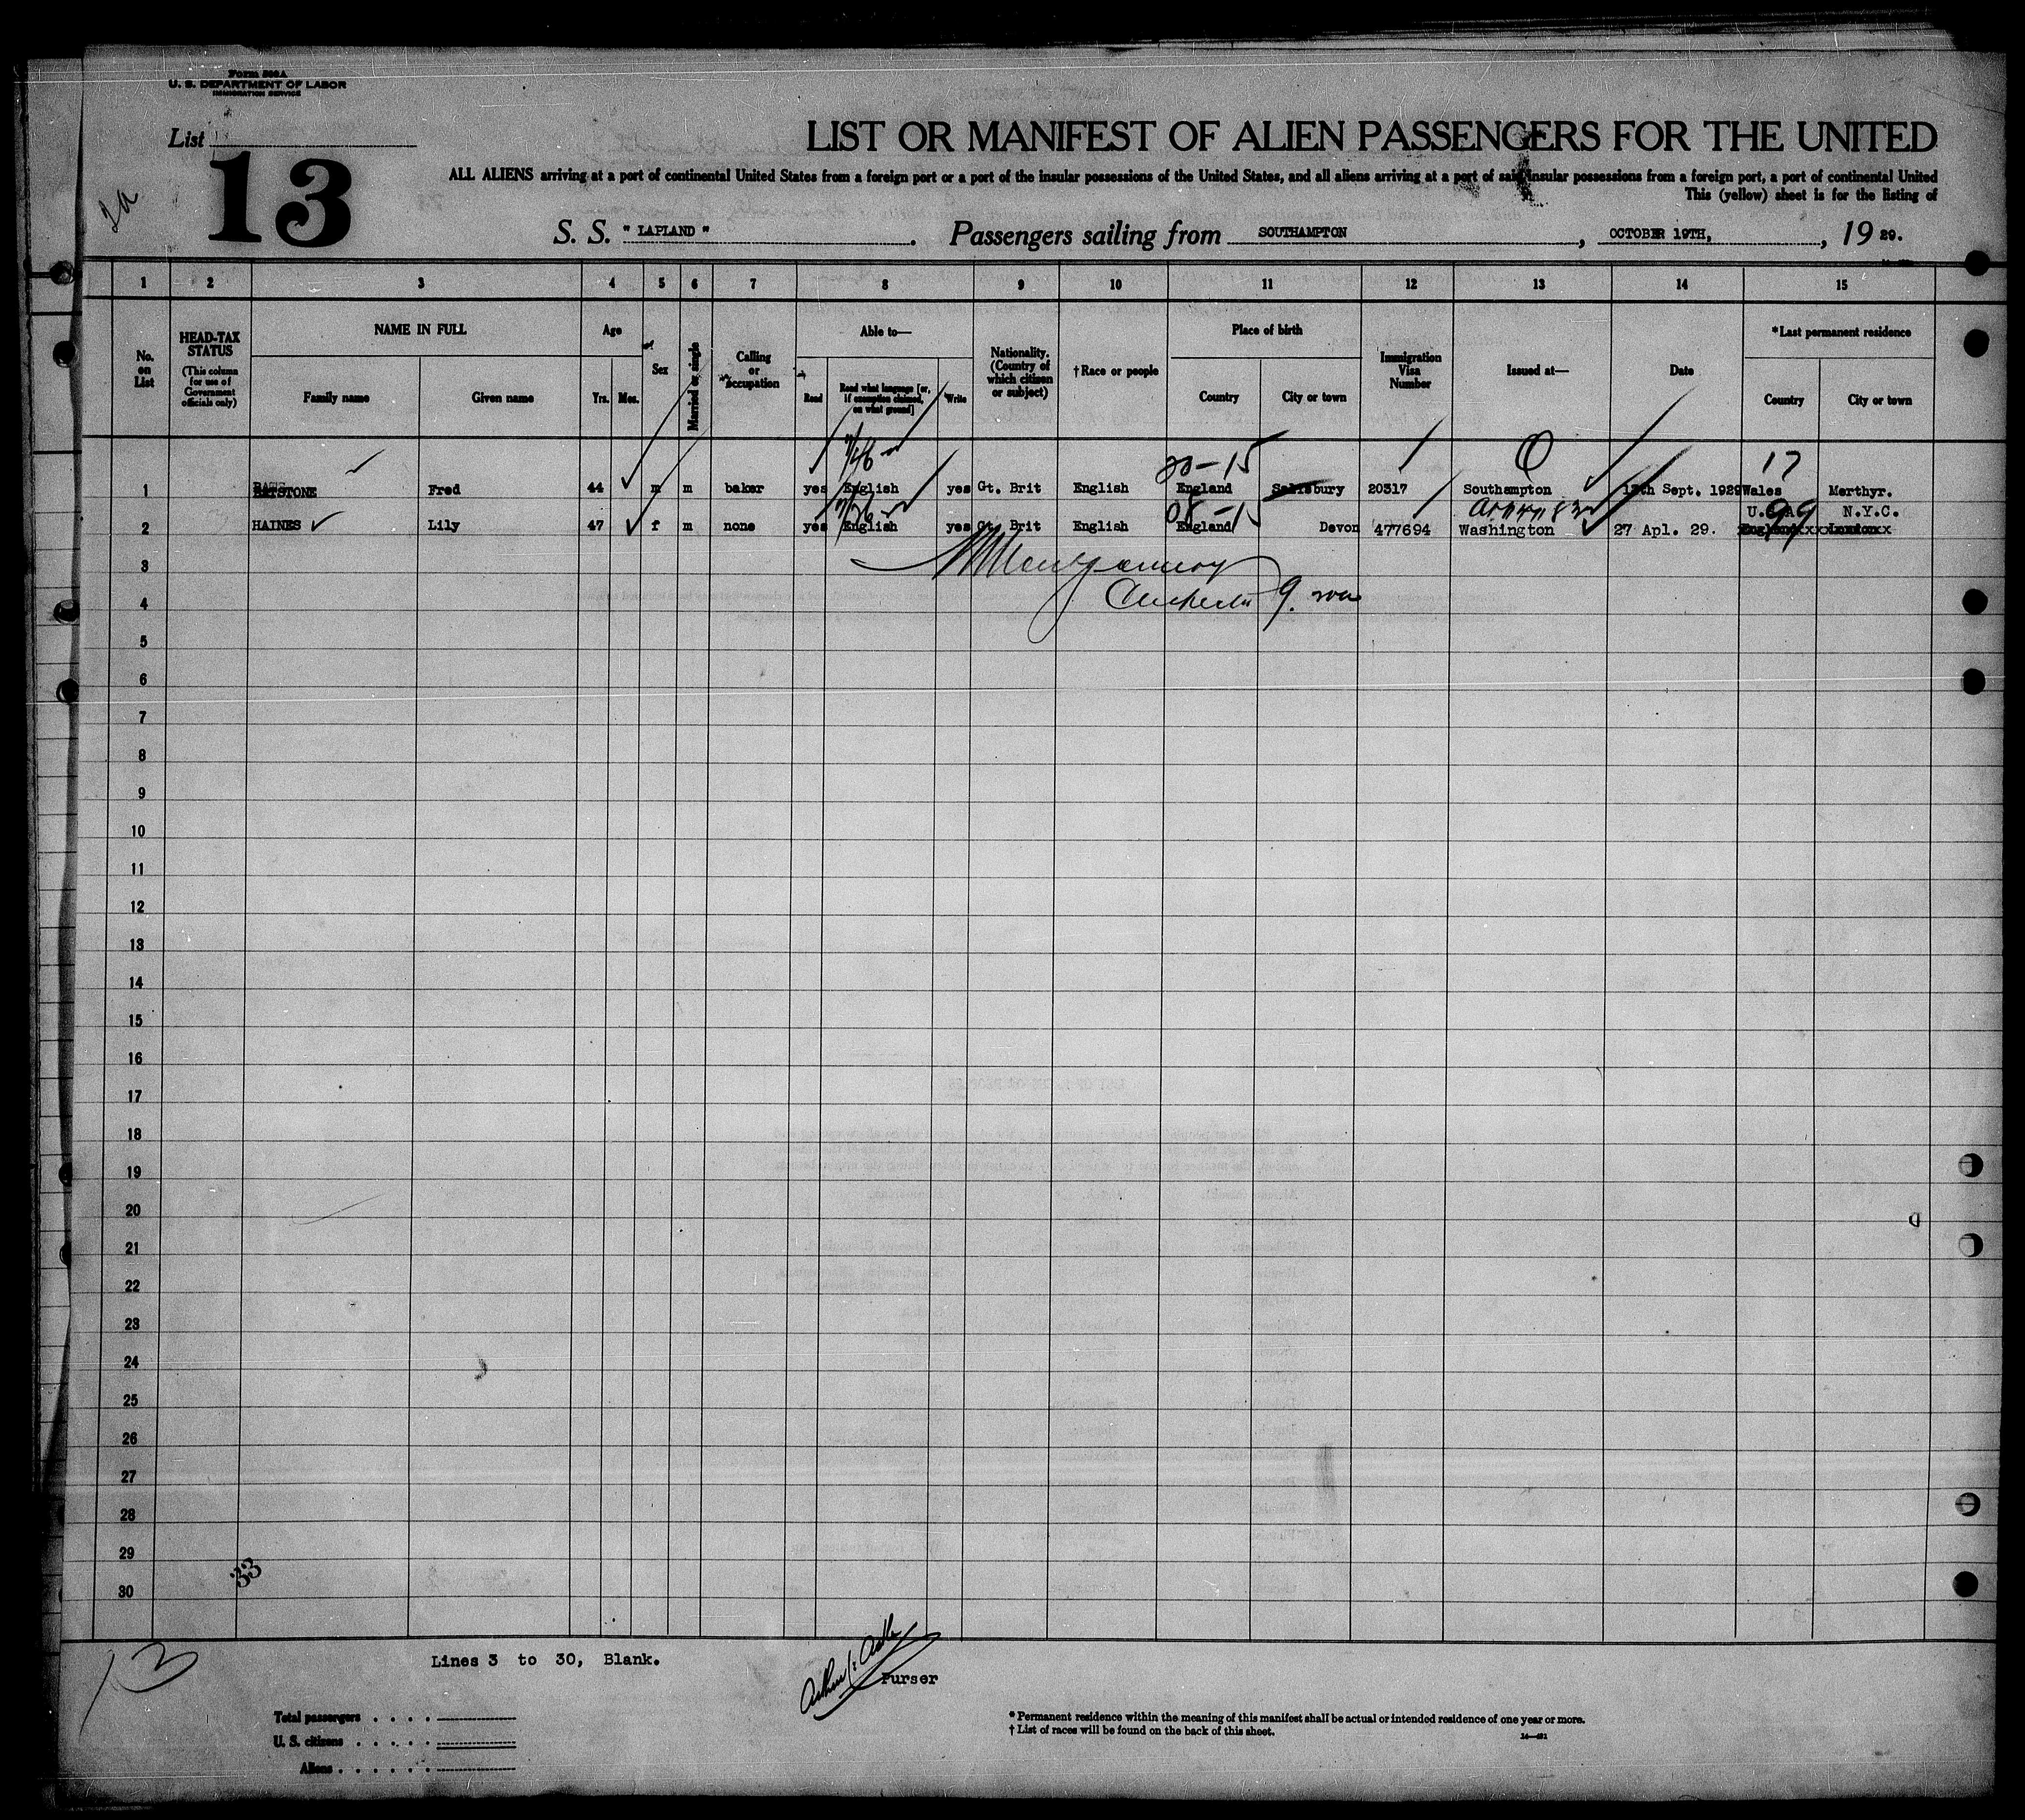 Form 500A
U. S. DEPARTMENT OF LABOR
IMMIGRATION SERVICE
List
13
2a
LIST OR MANIFEST OF ALIEN PASSENGERS FOR THE UNITED
ALL ALIENS arriving at a port of continental United States from a foreign port or a port of the insular possessions of the United States, and all aliens arriving at a port of said insular possessions from a foreign port, a port of continental United
This (yellow) sheet is for the listing of
S. S. "LAPLAND". Passengers sailing from SOUTHAMPTON, OCTOBER 19TH, , 19 29.
1 2 3 4 5 6 7 8 9 10 11 12 13 14 15
No. on List
HEAD-TAX STATUS
(This column for use of Government officials only)
NAME IN FULL
Family name
Given name
Age
Yrs.
Mos.
Sex
Married or single
Calling or occupation
Able to—
Read
Read what language [or, if exemption claimed, on what ground]
Write
Nationality. (Country of which citizen or subject)
†Race or people
Place of birth
Country
City or town
Immigration Visa Number
Issued at—
Date
*Last permanent residence
Country
City or town
20-15
17
1 BATSTONE Fred 44 m m baker yes English yes Gt. Brit English England Salisbury 20317 Southampton Sept. 1929 Wales Merthyr.
08-15
99
U.S.A. N.Y.C.
2 HAINES Lily 47 f m none yes English yes Gt. Brit English England Devon 477694 Washington 27 Apl. 29.
Montgomery
3
4
5
6
7
8
9
10
11
12
13
14
15
16
17
18
19
20
21
22
23
24
25
26
27
28
29
30
33
13
Lines 3 to 30, Blank.
Purser
Total passengers
U. S. citizens
Aliens
* Permanent residence within the meaning of this manifest shall be actual or intended residence of one year or more.
† List of races will be found on the back of this sheet.